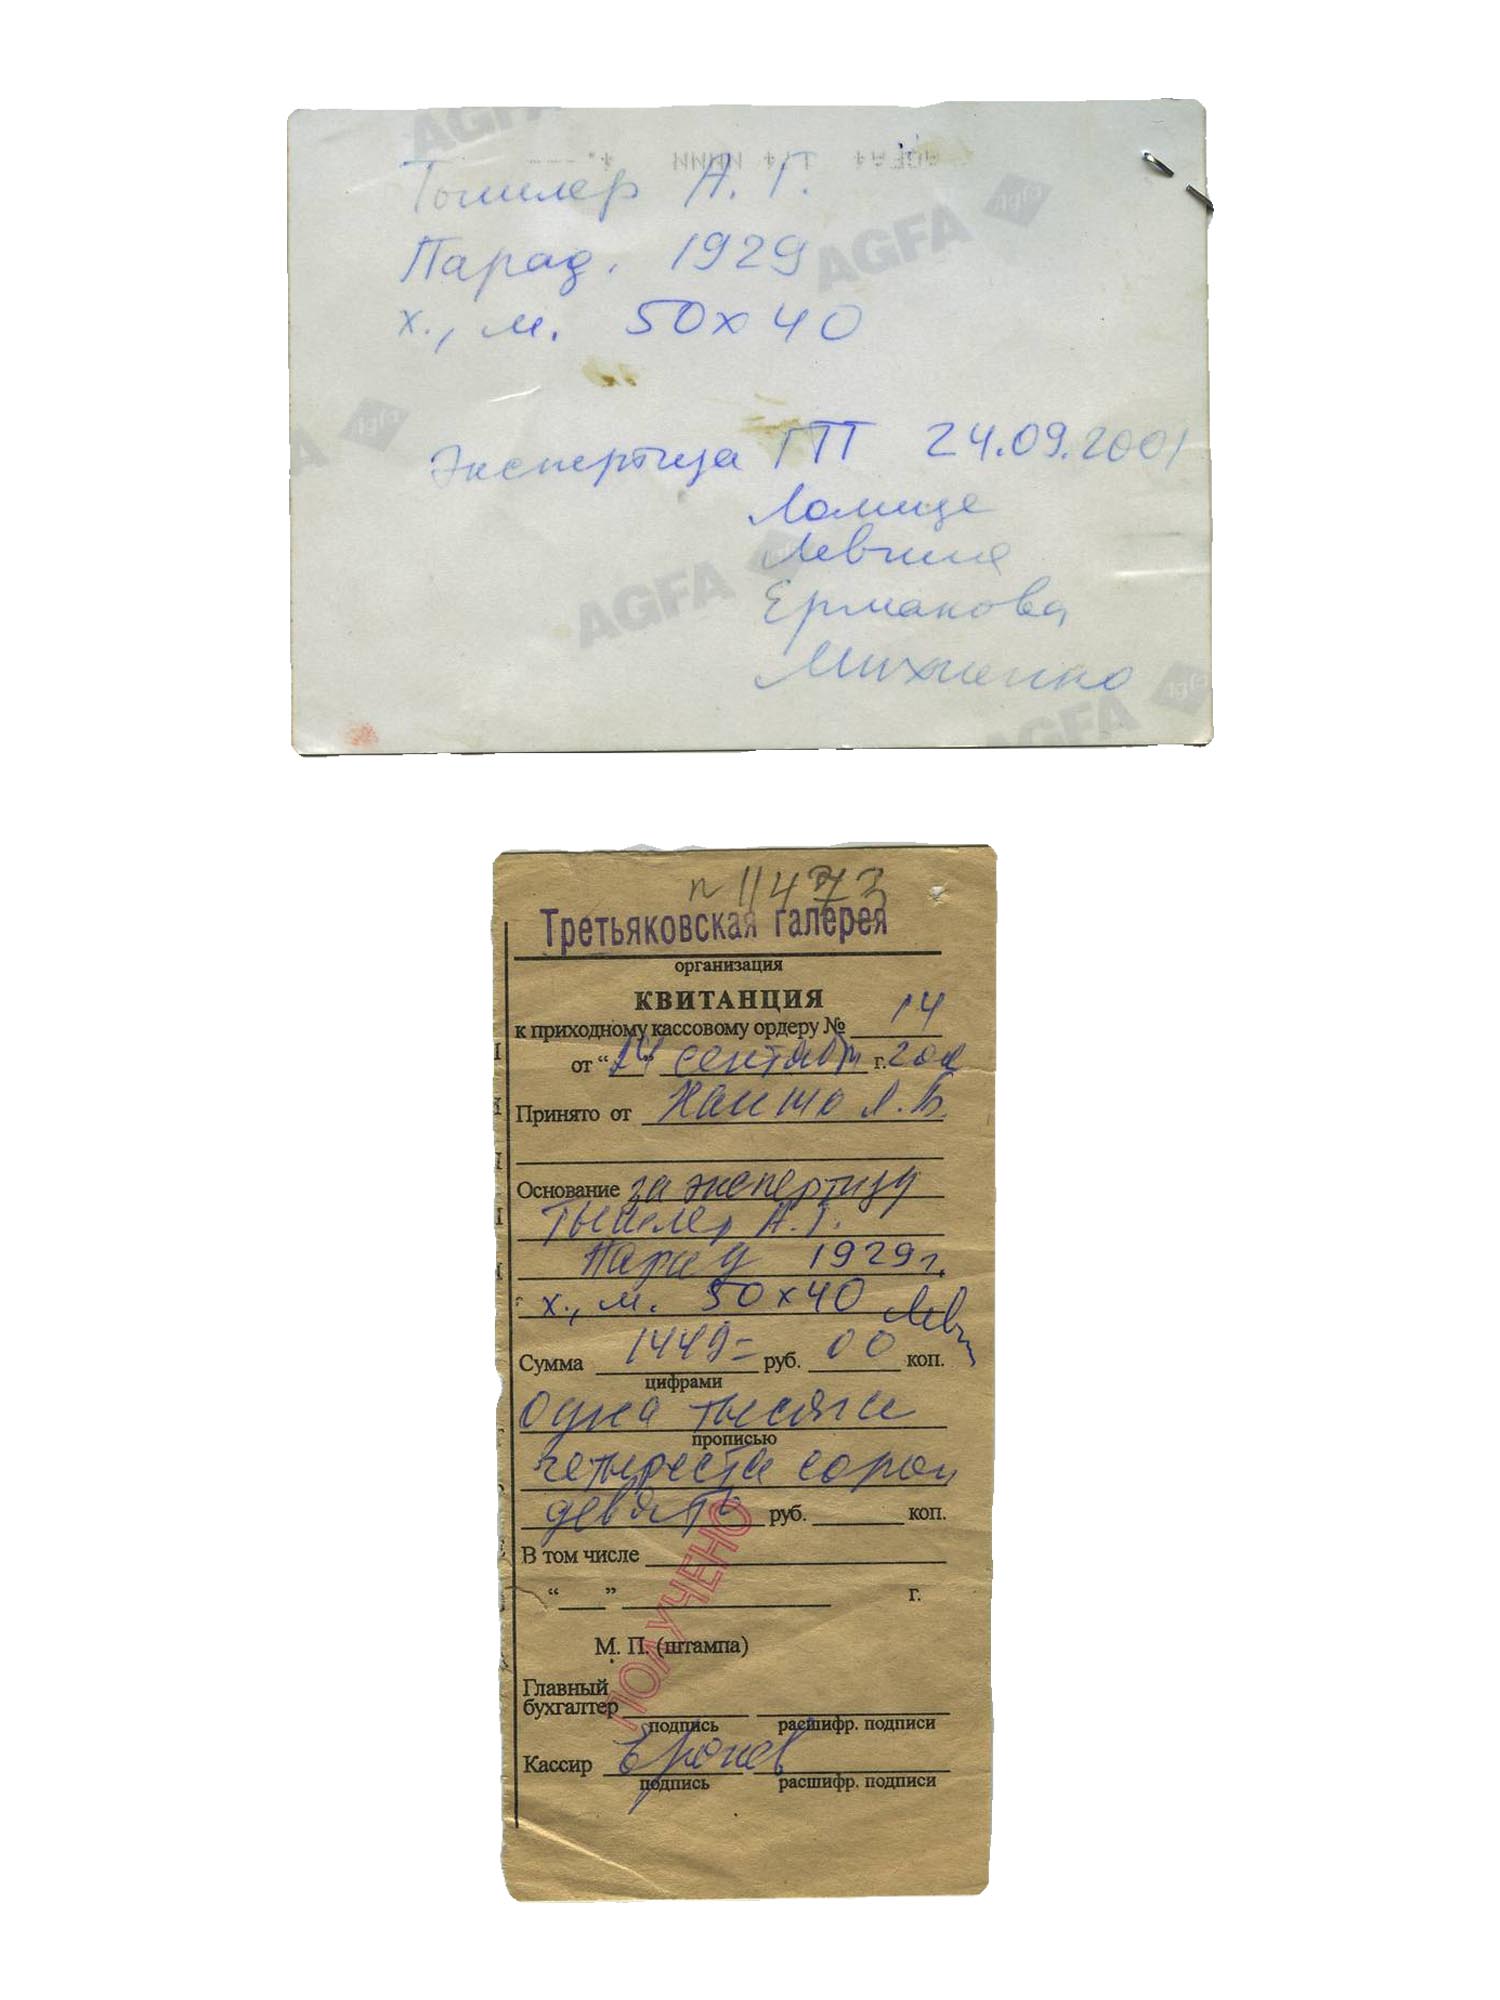 AGFA
Тышлер А. Г.
Парад. 1929
AGFA Agfa
х., м. 50х40
Agfa
Экспертиза ГТГ 24.09.2001
Ломизе
Левина
AGFA
Ермакова
Михиенко
AGFA Agfa
11473
Третьяковская галерея
организация
КВИТАНЦИЯ
к приходному кассовому ордеру № 14
от “24” сентября г.
Принято от
Основание за экспертизу
Тышлер А. Г.
Парад 1929 г.
х., м. 50х40
Сумма 1449= руб. 00 коп.
цифрами
одна тысяча
прописью
четыреста сорок
девять руб. коп.
В том числе
“ ” г.
ПОЛУЧЕНО
М. П. (штампа)
Главный
бухгалтер
подпись расшифр. подписи
Кассир
подпись расшифр. подписи